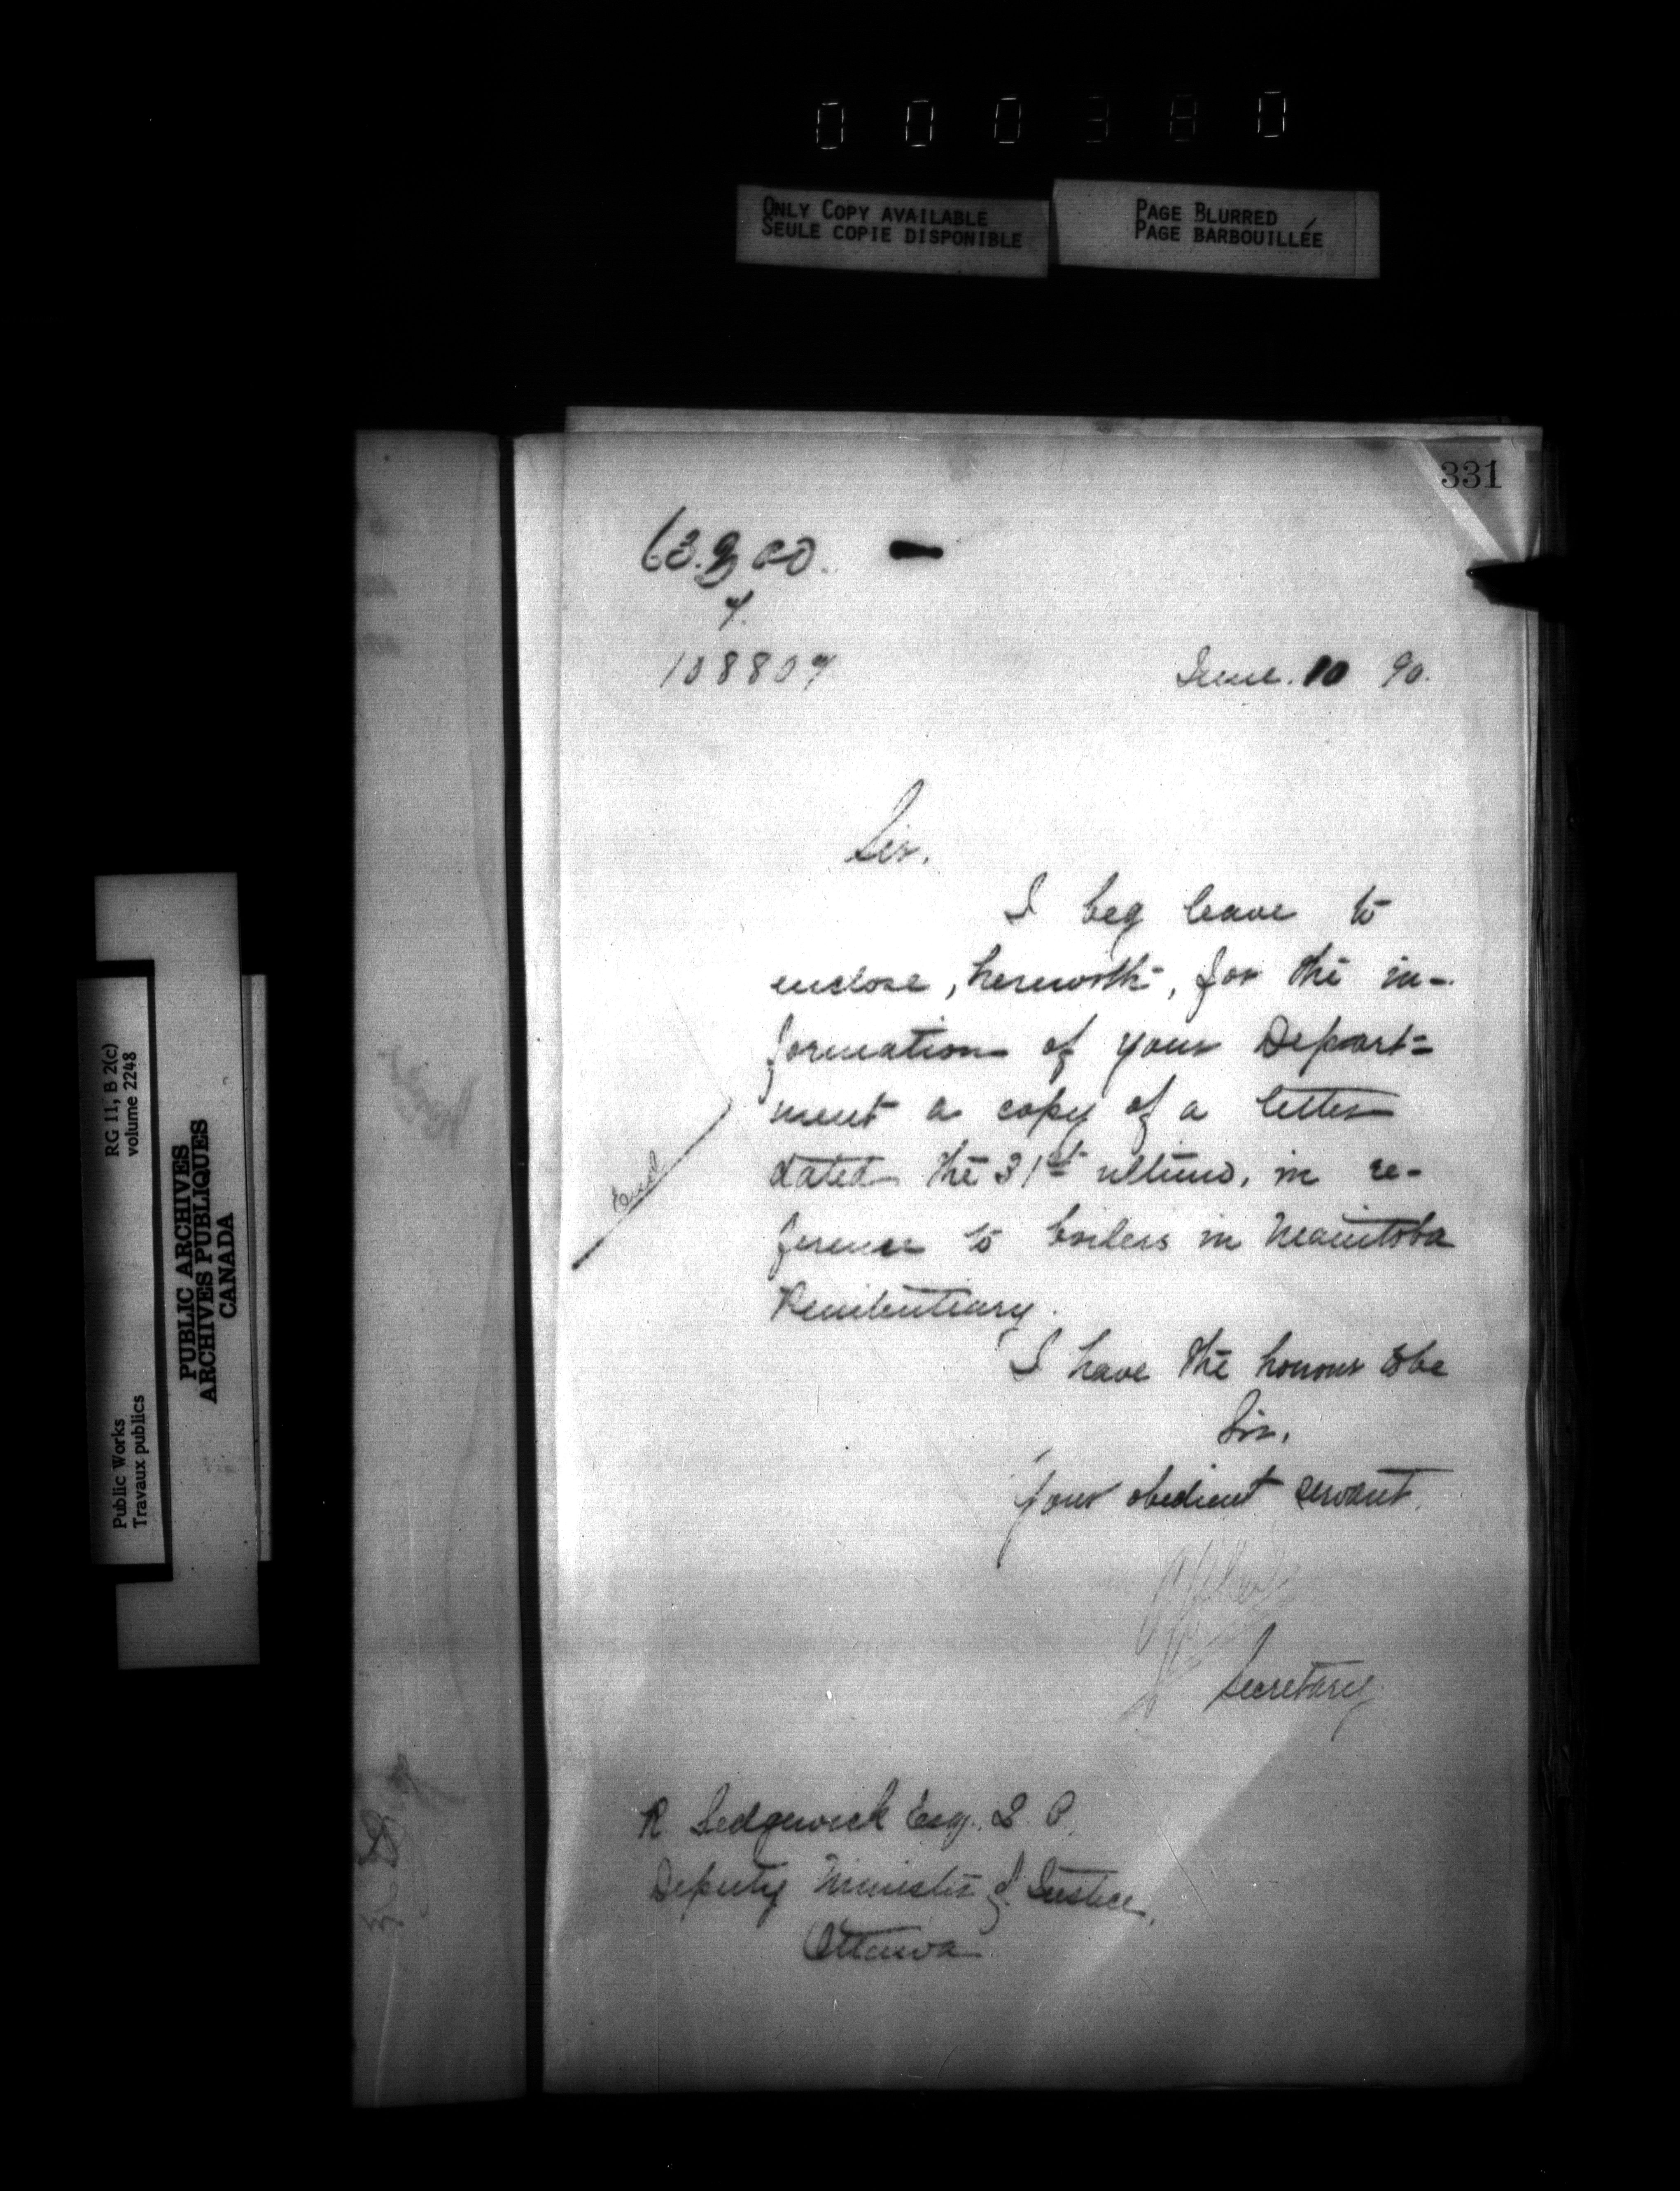 000380
ONLY COPY AVAILABLE
SEULE COPIE DISPONIBLE
PAGE BLURRED
PAGE BARBOUILLÉE
331
108807
June. 10 90.
Sir.
I beg leave to
enclose, herewith, for the in-
formation of your Depart=
ment a copy of a letter
dated the 31st ultimo, in re-
ference to boilers in Manitoba
Penitentiary.
Encl
I have the honour to be
Sir,
Your obedient servant,
Secretary
R Sedgewick Esq. Q. C.
Deputy Minister of Justice,
Ottawa
Public Works
Travaux publics
RG 11, B 2(c)
volume 2248
PUBLIC ARCHIVES
ARCHIVES PUBLIQUES
CANADA